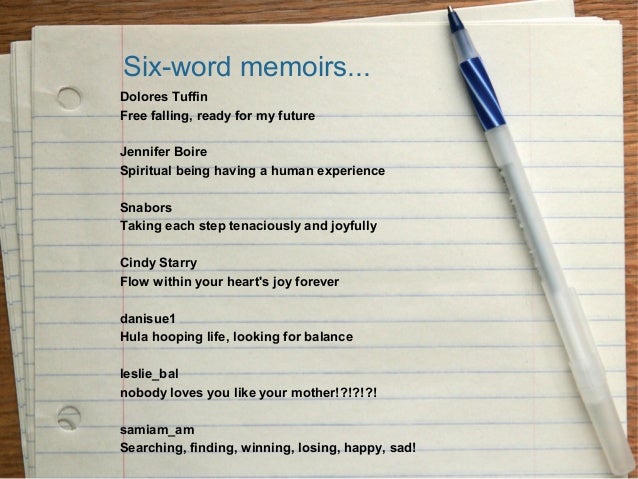 Six-word memoirs...
Dolores Tuffin
Free falling, ready for my future
Jennifer Boire
Spiritual being having a human experience
Snabors
Taking each step tenaciously and joyfully
Cindy Starry
Flow within your heart's joy forever
danisue1
Hula hooping life, looking for balance
leslie_bal
nobody loves you like your mother!?!?!?!
samiam_am
Searching, finding, winning, losing, happy, sad!